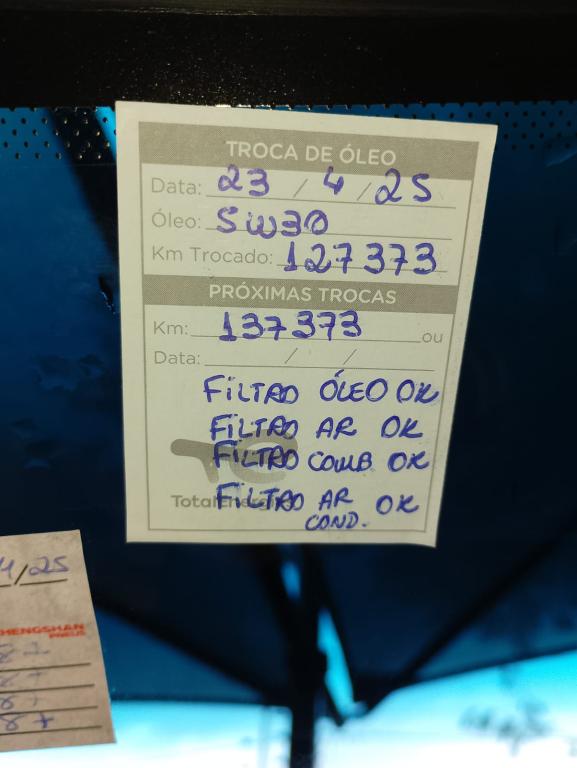 TROCA DE ÓLEO
Data: 23 / 4 / 25
Óleo: 5W30
Km Trocado: 127373
PRÓXIMAS TROCAS
Km: 137373 ou
Data: / /
FILTRO ÓLEO OK
FILTRO AR OK
FILTRO COMB. OK
TotalEnergies
FILTRO AR OK
COND.
4/25
PNEUS